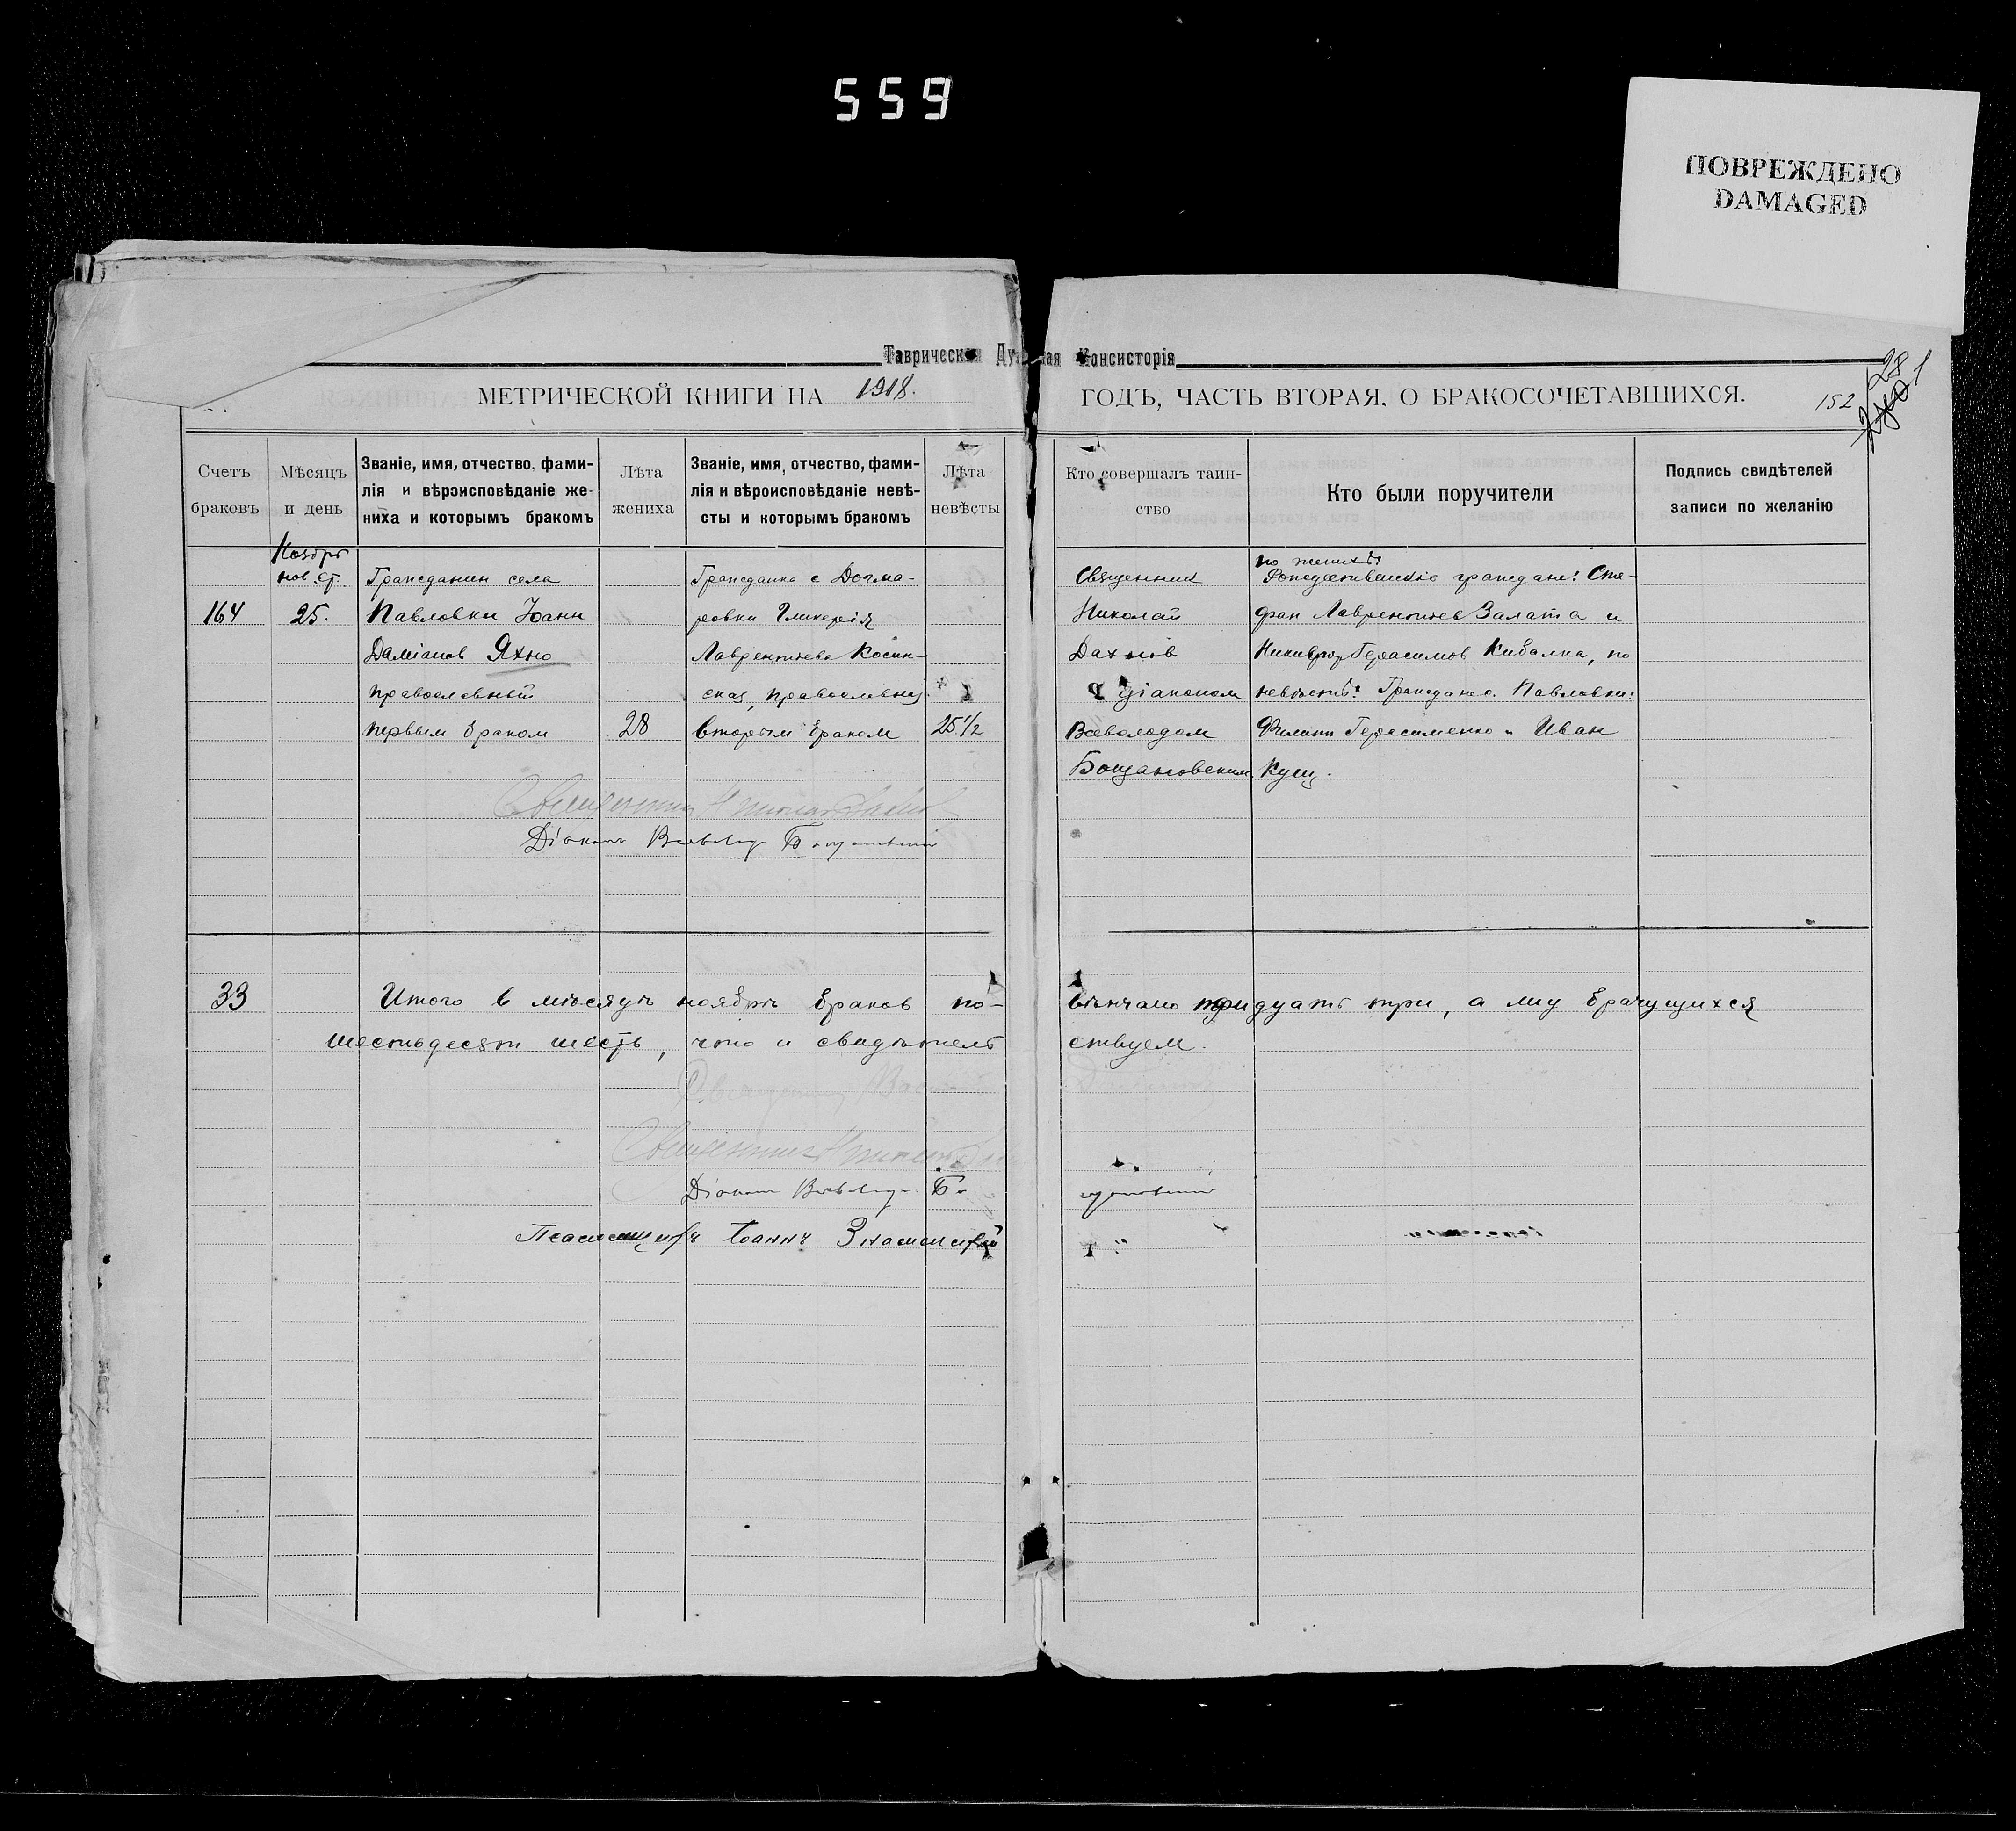 559
ПОВРЕЖДЕНО
DAMAGED
Таврическая Духовная Консисторія
МЕТРИЧЕСКОЙ КНИГИ НА 1918. ГОДЪ, ЧАСТЬ ВТОРАЯ, О БРАКОСОЧЕТАВШИХСЯ.
152
Счетъ браковъ
Мѣсяцъ и день
Званіе, имя, отчество, фами-
лія и вѣроисповѣданіе же-
ниха и которымъ бракомъ
Лѣта жениха
Званіе, имя, отчество, фами-
лія и вѣроисповѣданіе невѣ-
сты и которымъ бракомъ
Лѣта невѣсты
Кто совершалъ таин-
ство
Кто были поручители
Подпись свидѣтелей
записи по желанію
164
Ноябрь
нов. ст.
25.
Гражданин села
Павловки Іоанн
Даміанов Яхно
православный
первым браком
28
Гражданка с Догма-
ровки Гликерія
Лаврентьева Косин-
ская, православная
вторым браком
25 1/2
Священник
Николай
Дахнов
с діаконом
Всеволодом
Богдановским
по женихѣ:
Рождественскіе граждане: Сте-
фан Лаврентьев Залата и
Никифор Герасимов Кибалка, по
невѣстѣ: Граждане Павловки:
Филипп Герасименко и Иван
Кущ.
Священник Николай Дахнов
Діаконъ Всеволод Богдановский
33
Итого в мѣсяцѣ ноябрѣ браков по-
вѣнчано тридцать три, а лиц брачущихся
шестьдесят шесть, что и свидѣтель
ствуем.
Священник Николай
Діаконъ Всеволод Богдановский
Псаломщикъ Іоаннъ Знаменскій